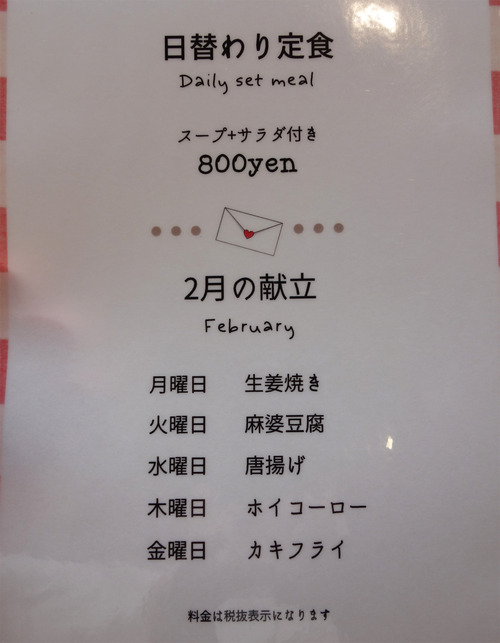 日替わり定食
Daily set meal
スープ+サラダ付き
800yen
2月の献立
February
月曜日 生姜焼き
火曜日 麻婆豆腐
水曜日 唐揚げ
木曜日 ホイコーロー
金曜日 カキフライ
料金は税抜表示になります